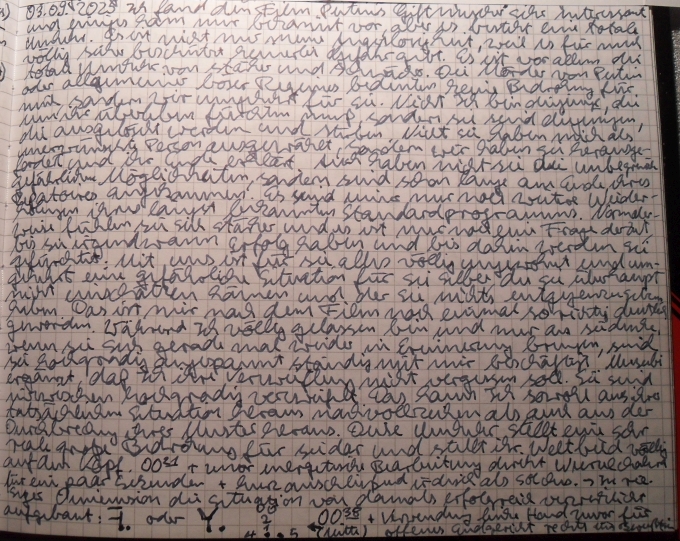 03.09.2025 Ich fand den Film Putins Giftmischer sehr interessant
und einiges kam mir bekannt vor aber es besteht eine totale
Umkehr. Es ist nicht nur meine weil es für mich
völlig sehr keinerlei Gefahr gibt. Es ist vor allem die
totale Umkehr von Stärke und Schwäche. Die Mörder von Putin
oder allgemeiner böser Regimes bedeuten keine Bedrohung für
mich sondern wir umgekehrt für sie. Nicht ich bin diejenige, die
um ihr Überleben fürchten muß, sondern sie sind diejenigen,
die ausgelöscht werden und sterben. Nicht sie haben mich als
Person ausgewählt, sondern wir haben sie herausge-
fordert und ihr Ende erklärt. Auch haben nicht sie die unbegrenzt
gefährliche Möglichkeiten, sondern sind schon lange am Ende ihres
angekommen, es sind immer nur noch weitere Wieder-
holungen ihres längst bekannten Standardprogramms. Normaler-
weise fühlen sie sich stärker und es ist nur noch eine Frage der Zeit
bis sie irgendwann Erfolg haben und bis dahin werden sie
gefürchtet. Mit uns ist für sie alles völlig ungewohnt und um-
gekehrt eine gefährliche Situation für sie selber die sie überhaupt
nicht einschätzen können und der sie nichts entgegenzusetzen
haben. Das ist mir nach dem Film noch einmal so richtig deutlich
geworden. Während ich völlig gelassen bin und nur an sie denke,
wenn sie sich gerade mal wieder in Erinnerung bringen, sind
sie hochgradig angespannt ständig mit mir beschäftigt.
ergänzt, daß ich ihre Verzweiflung nicht vergessen soll. Sie sind
inzwischen hochgradig verzweifelt. Das kann ich sowohl aus ihrer
tatsächlichen Situation heraus nachvollziehen als auch aus der
Durchbrechung ihres Musters heraus. Diese Umkehr stellt eine sehr
reale große Bedrohung für sie dar und stellt ihr Weltbild völlig
auf den Kopf. 0031 + vor energetische Bearbeitung direkt
für ein paar Sekunden + kurz anschließend
Dimension die Situation von damals erfolgreich
aufgebaut: 7. oder Y. 0038 + Verwendung linke Hand zuvor für
(Mitte) offenes rechts